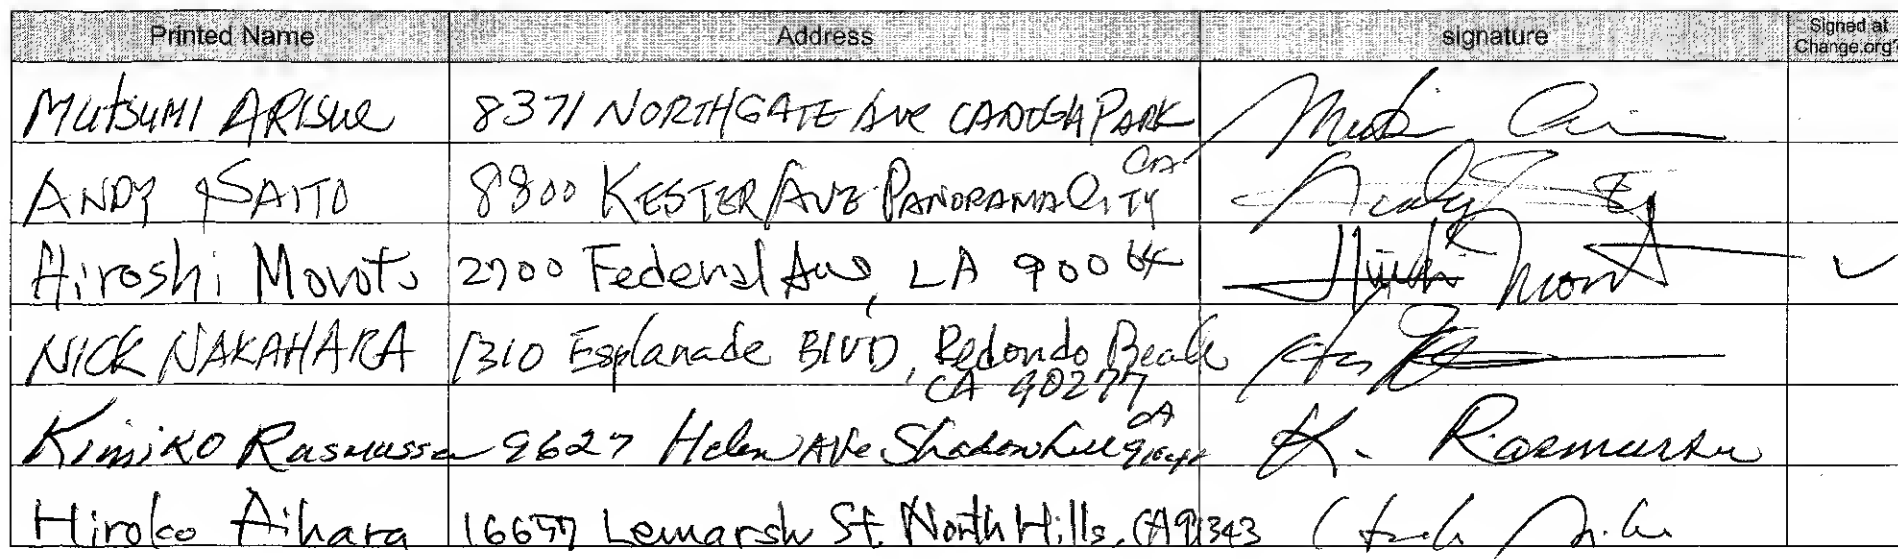 Printed Name Address signature Signed at Change.org?
MUTSUMI ARISUE 8371 NORTHGATE AVE CANOGA PARK CA
ANDY SAITO 8800 KESTER AVE PANORAMA CITY
Hiroshi Moroto 2700 Federal Ave, LA 90064 ✓
NICK NAKAHARA 1310 Esplanade BLVD, Redondo Beach
CA 90277
Kimiko Rasmussen 9627 Helen Ave Shadow CA K. Rasmussen
Hiroko Aihara Lemarsh St. North Hills, CA 91343